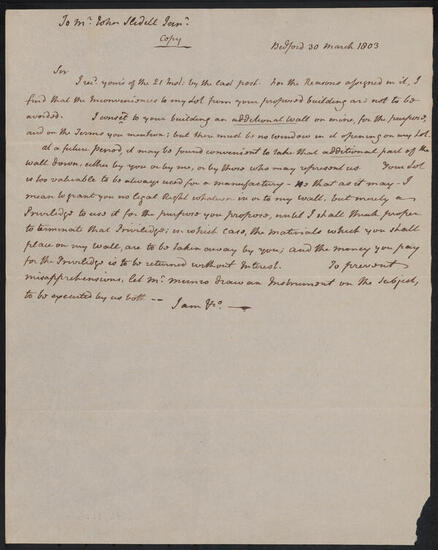 To Mr. John Slidell Junr.
Copy
Bedford 30 March 1803
Sir
I recd. yours of the 21 Inst: by the last post. For the Reasons assigned in it, I
find that the Inconveniences to my Lot from your proposed building are not to be
avoided. I consent to your building an additional Wall on mine, for the purpose,
and on the Terms you mention; but there must be no window in it opening on my Lot.
at a future Period, it may be found convenient to take that additional part of the
wall down, either by you or by me, or by those who may represent us Your Lot
is too valuable to be always used for a manufactory – As that as it may – I
mean to grant you no legal Right whatever in or to my wall, but merely a
Priviledge to use it for the purpose you propose, until I shall think proper
to terminate that Priviledge; in which case, the materials which you shall
place on my wall, are to be taken away by you; and the money you pay
for the Priviledge is to be returned without Interest. To prevent
misapprehensions, let Mr. Munro draw an Instrument on the Subject,
to be executed by us both --
I am &c. —